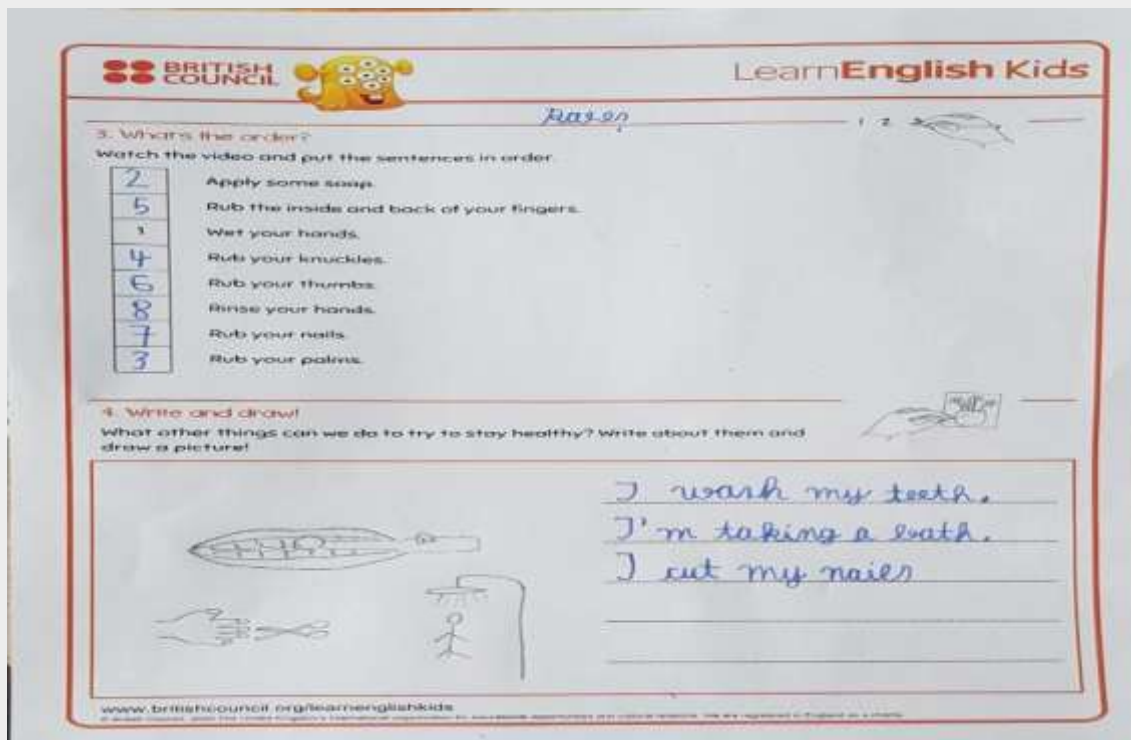 BRITISH
COUNCIL
LearnEnglish Kids
3. What's the order?
1 2 3
Watch the video and put the sentences in order.
2 Apply some soap.
5 Rub the inside and back of your fingers.
1 Wet your hands.
4 Rub your knuckles.
6 Rub your thumbs.
8 Rinse your hands.
7 Rub your nails.
3 Rub your palms.
4. Write and draw!
What other things can we do to try to stay healthy? Write about them and
draw a picture!
I wash my teeth.
I'm taking a bath.
I cut my nails
www.britishcouncil.org/learnenglishkids